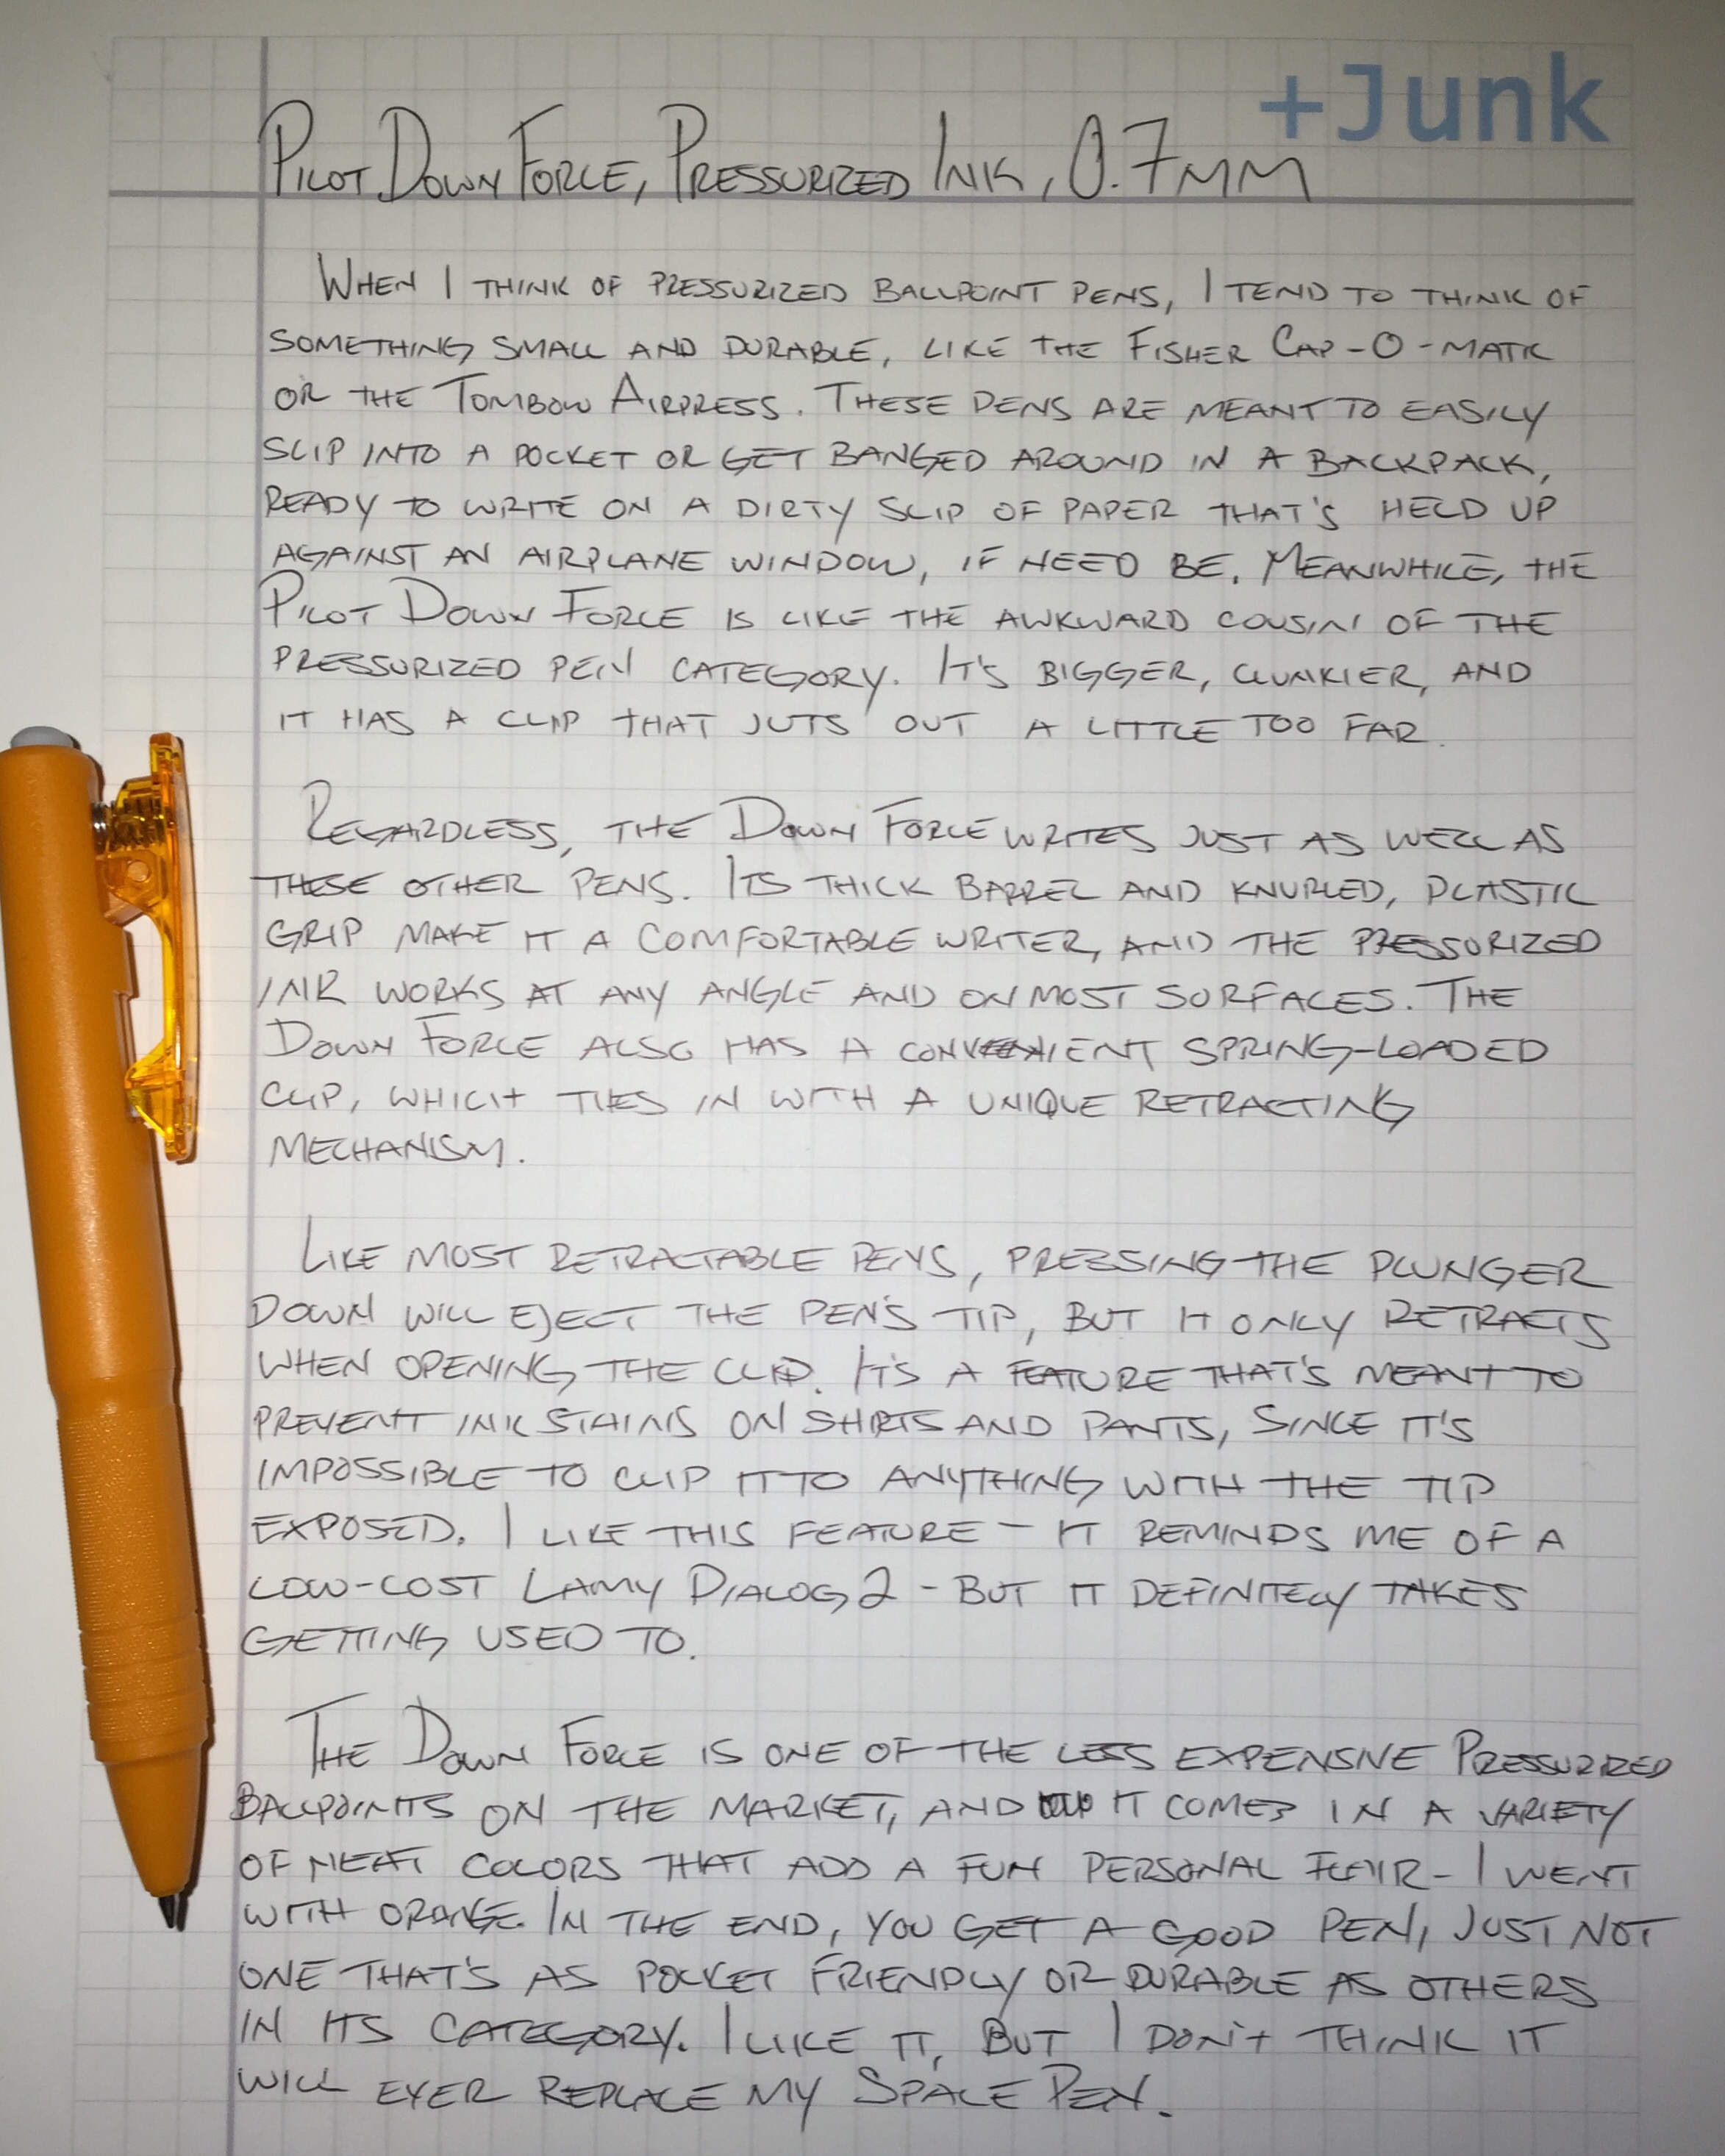 +Junk
Pilot Down Force, Pressurized Ink, 0.7mm
When I think of pressurized ballpoint pens, I tend to think of
something small and durable, like the Fisher Cap-O-Matic
or the Tombow Airpress. These pens are meant to easily
slip into a pocket or get banged around in a backpack,
ready to write on a dirty slip of paper that's held up
against an airplane window, if need be. Meanwhile, the
Pilot Down Force is like the awkward cousin of the
pressurized pen category. It's bigger, clunkier, and
it has a clip that juts out a little too far.
Regardless, the Down Force writes just as well as
these other pens. Its thick barrel and knurled, plastic
grip make it a comfortable writer, and the pressurized
ink works at any angle and on most surfaces. The
Down Force also has a convenient spring-loaded
clip, which ties in with a unique retracting
mechanism.
Like most retractable pens, pressing the plunger
down will eject the pen's tip, but it only retracts
when opening the clip. It's a feature that's meant to
prevent ink stains on shirts and pants, since it's
impossible to clip it to anything with the tip
exposed. I like this feature - it reminds me of a
low-cost Lamy Dialog 2 - but it definitely takes
getting used to.
The Down Force is one of the less expensive pressurized
ballpoints on the market, and it comes in a variety
of neat colors that add a fun personal flair - I went
with orange. In the end, you get a good pen, just not
one that's as pocket friendly or durable as others
in its category. I like it, but I don't think it
will ever replace my Space Pen.